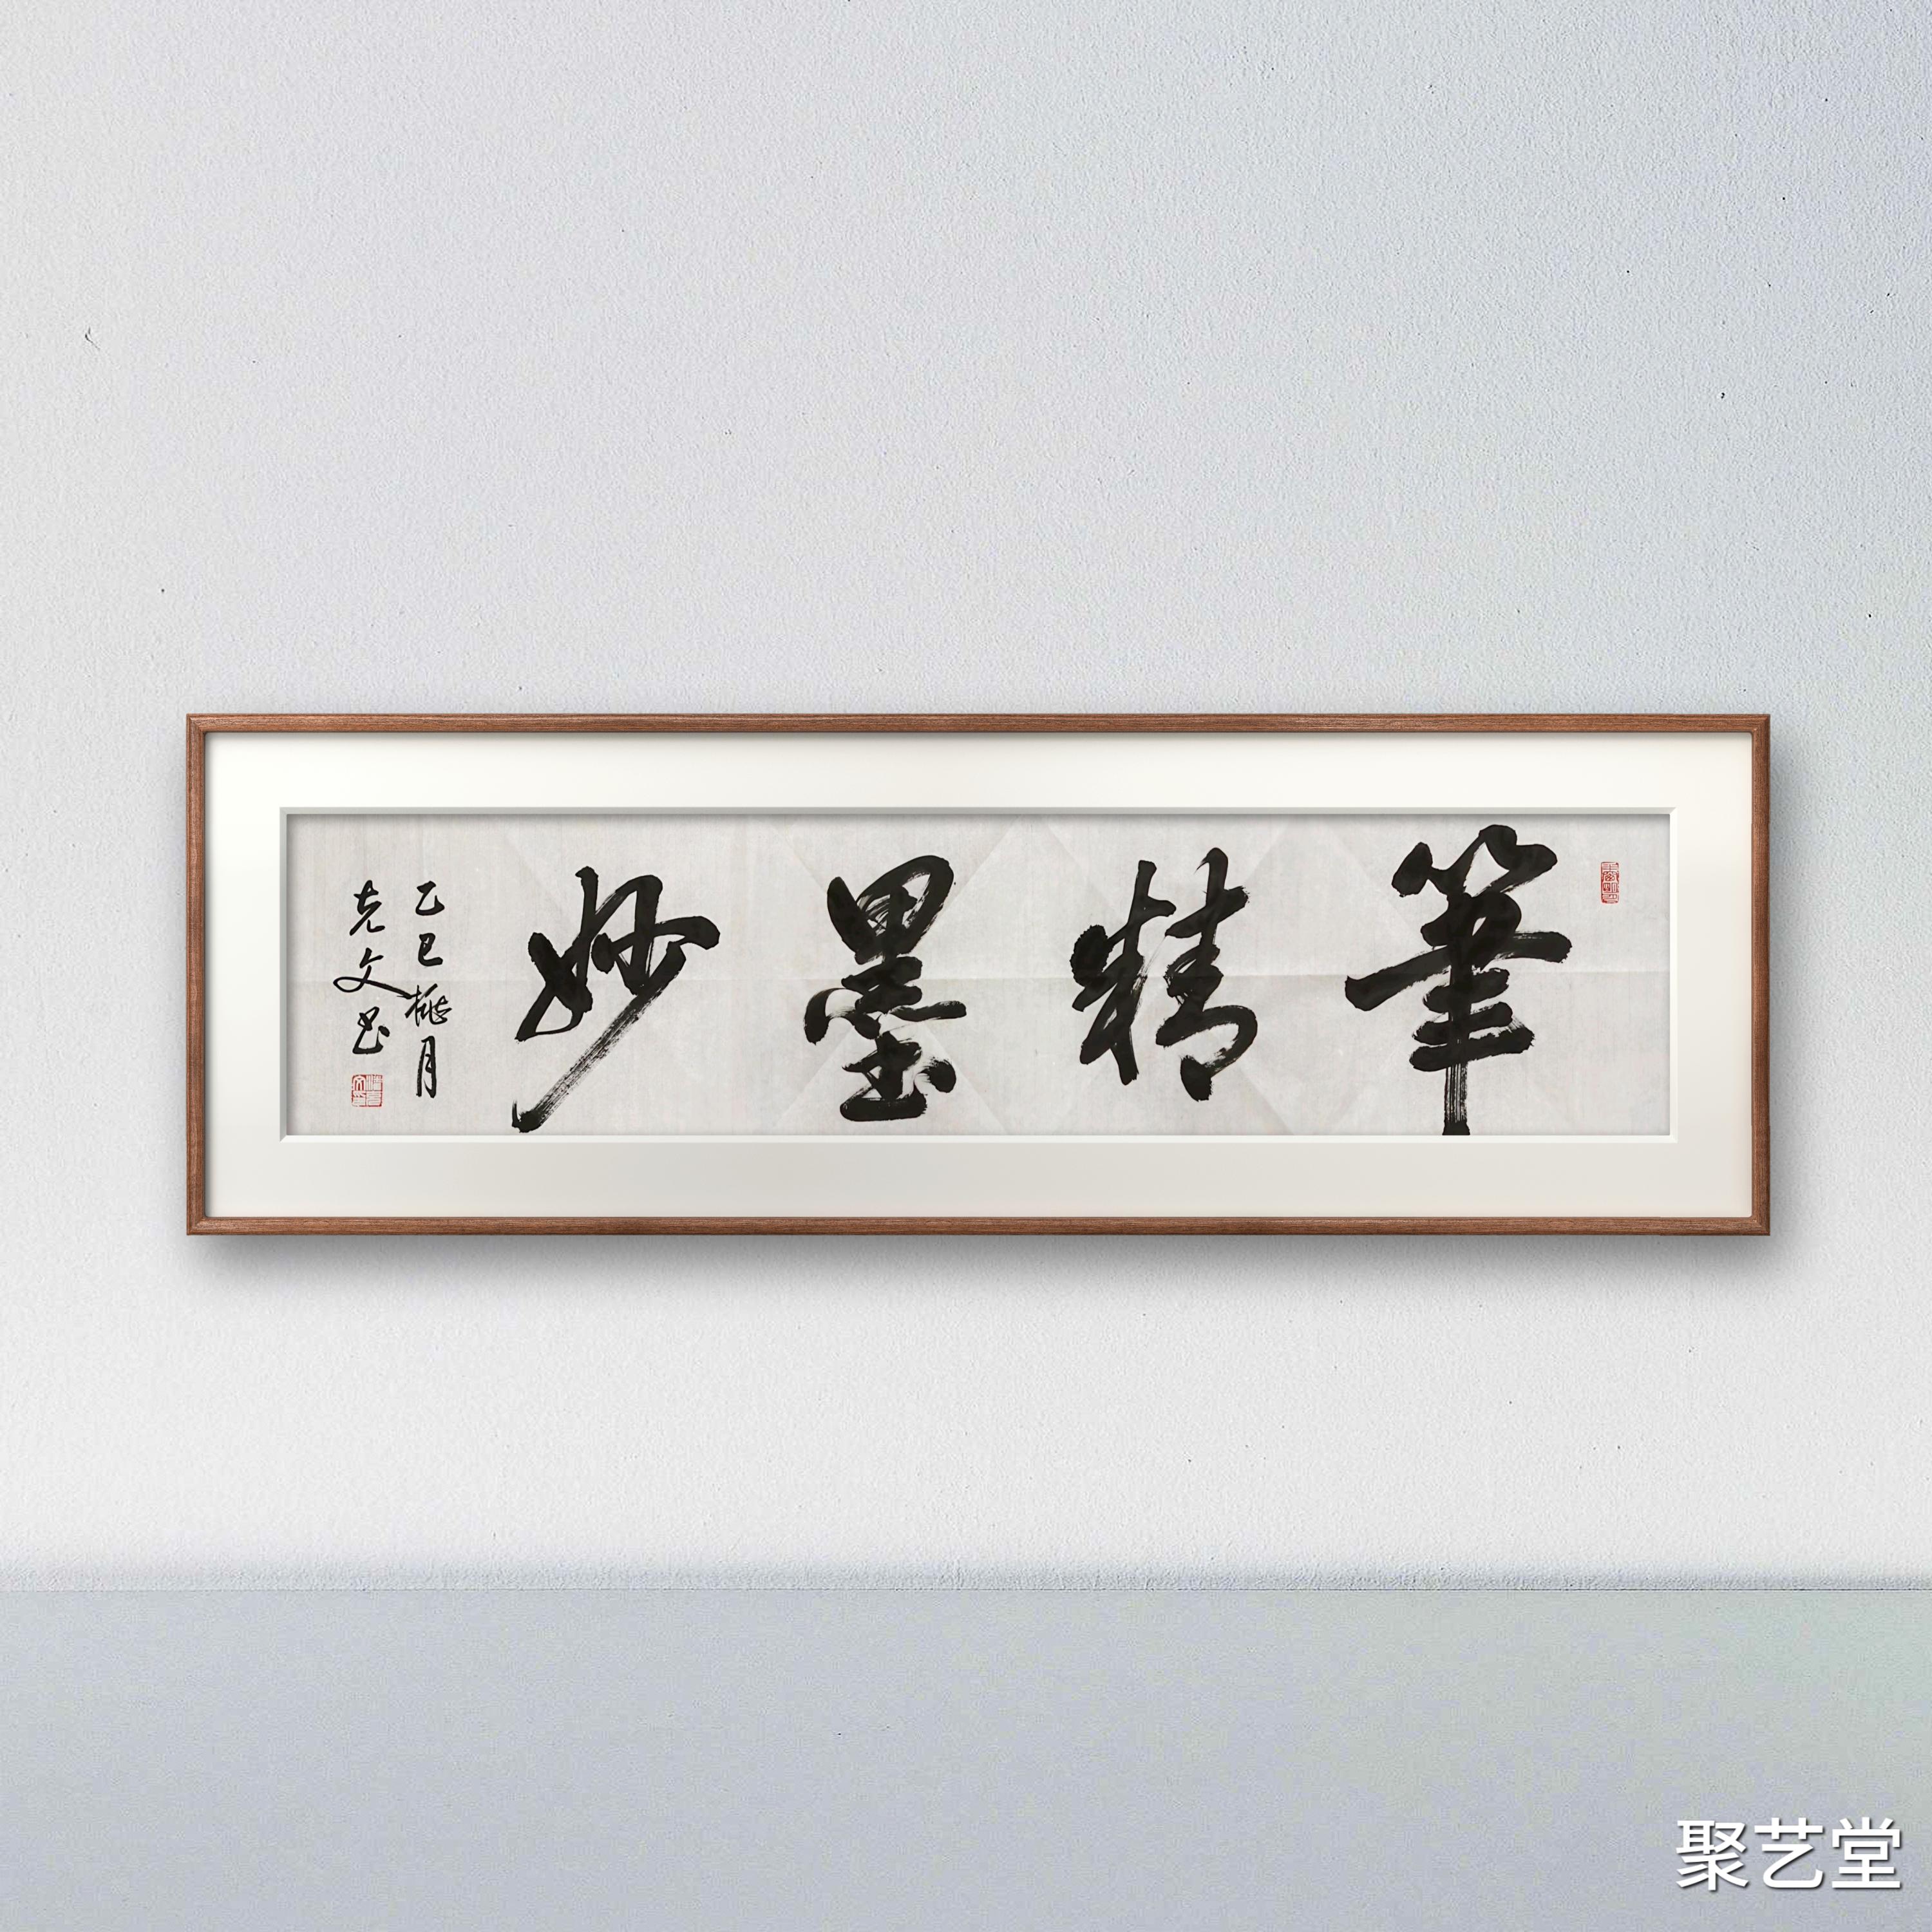 筆精墨妙
乙巳桃月
克文书
聚艺堂